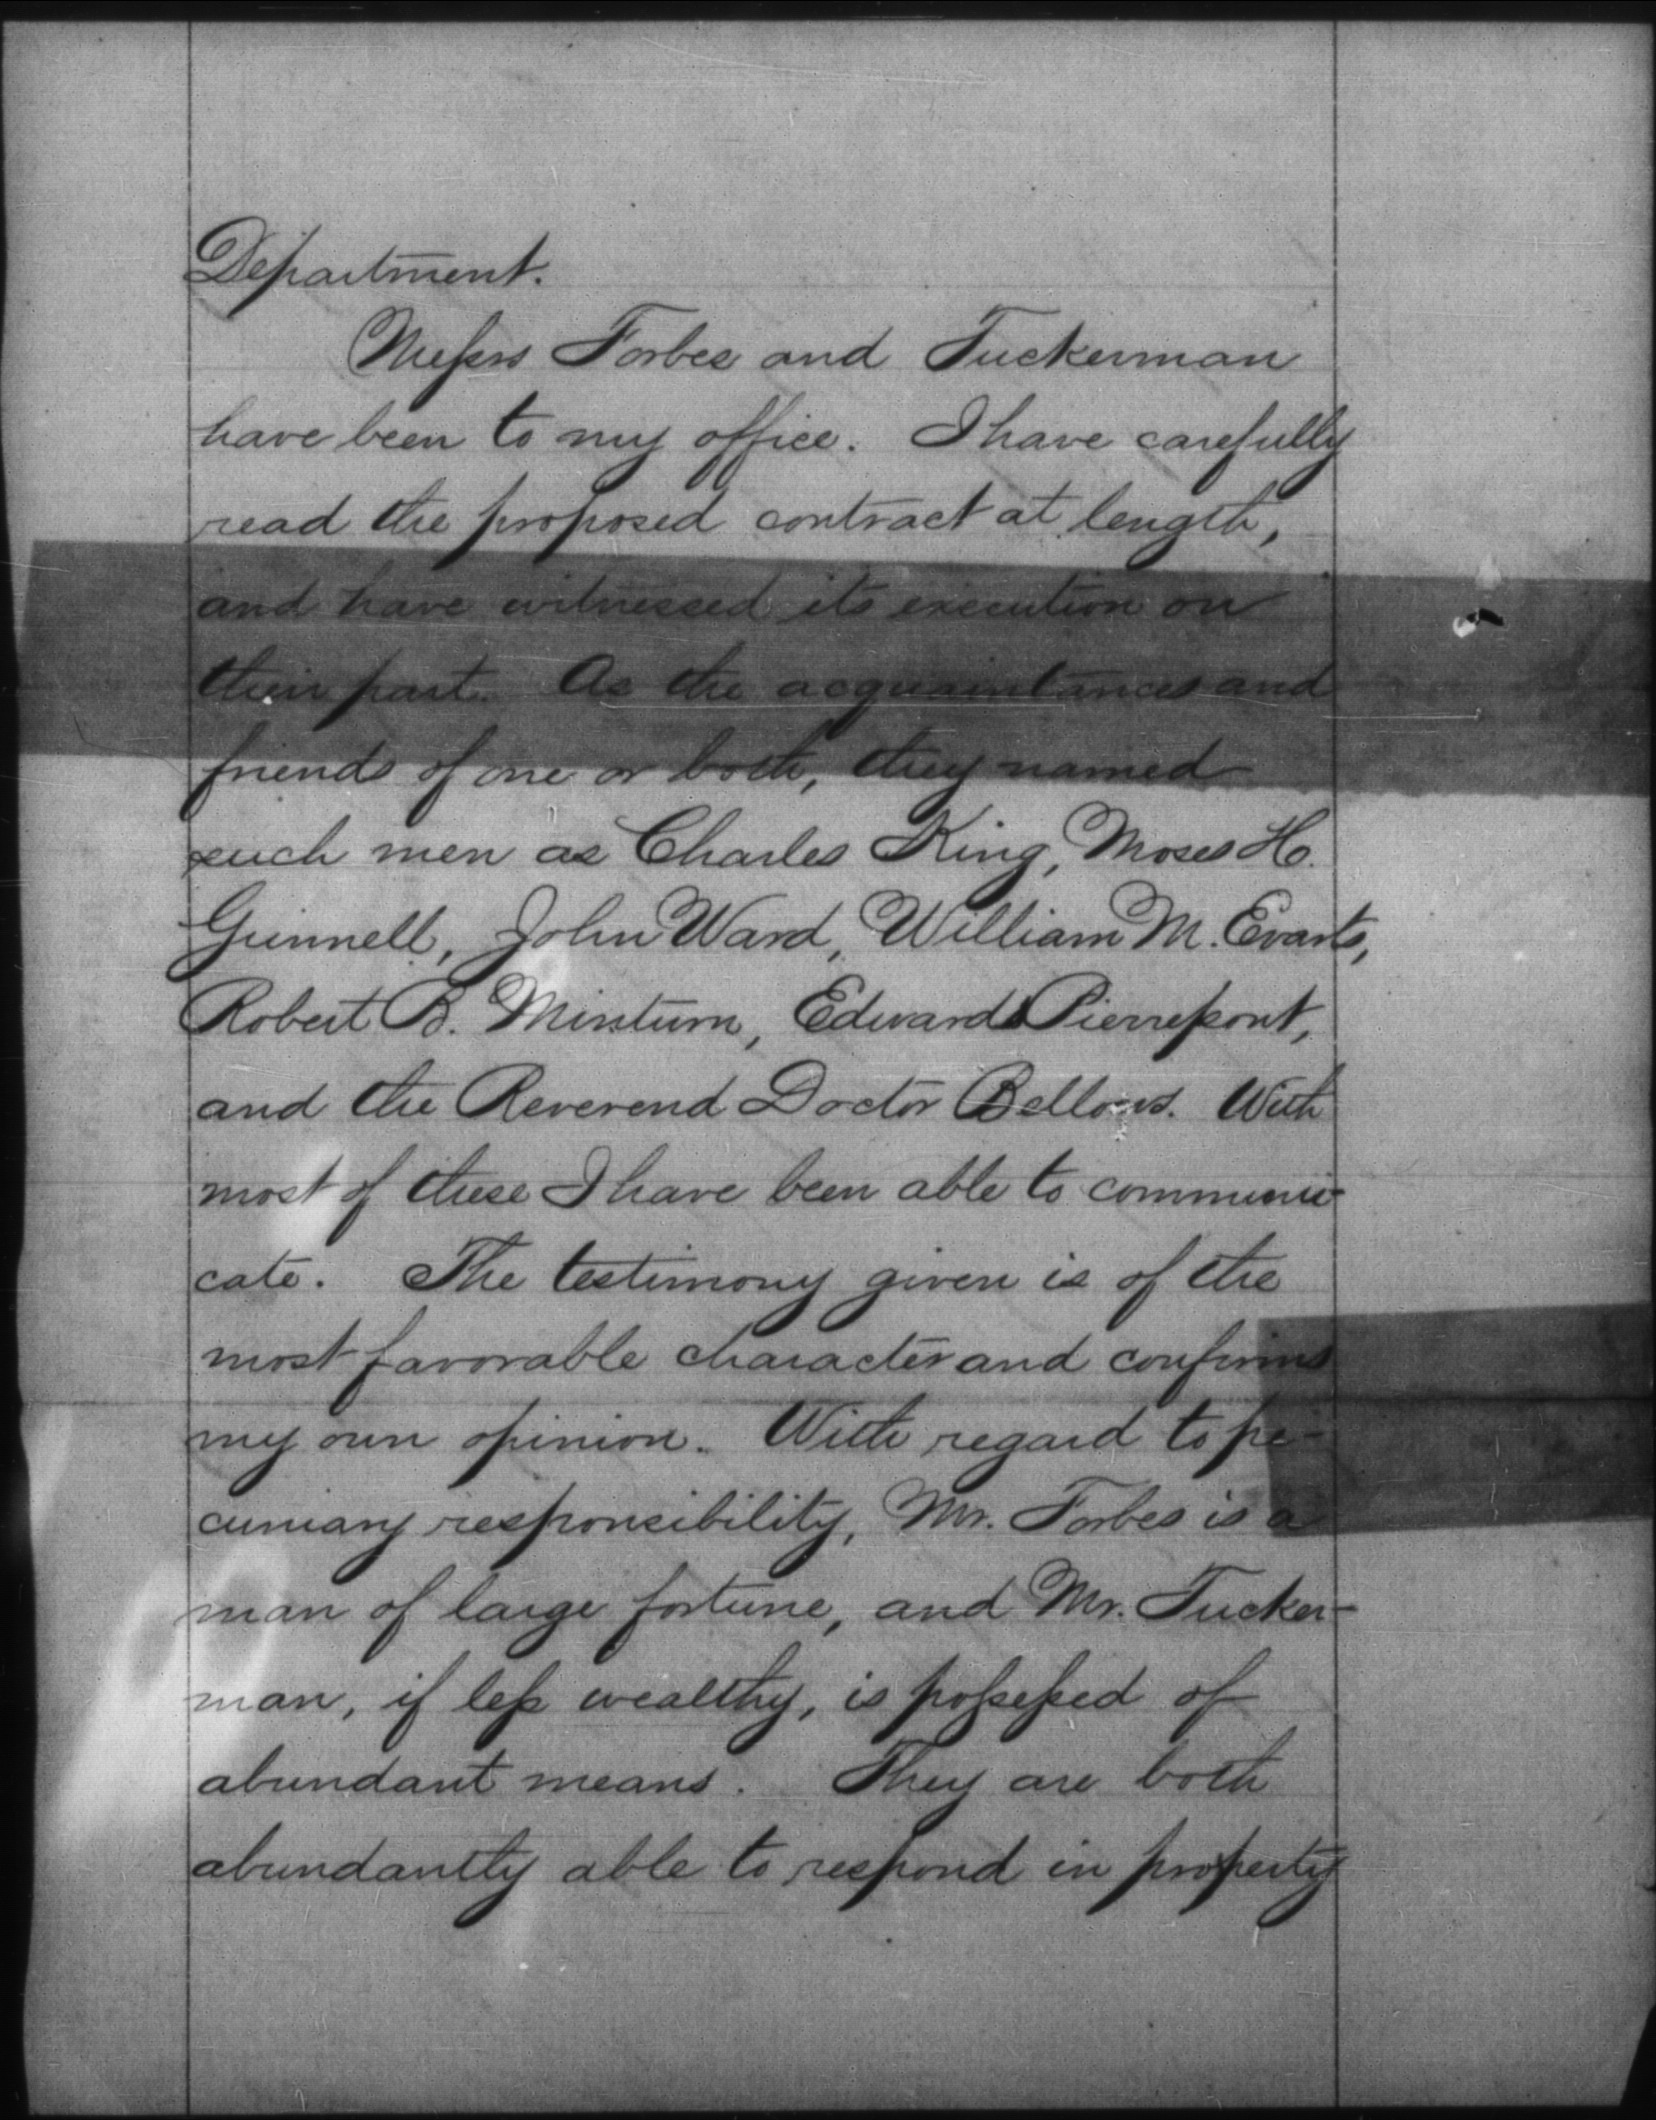 Department.
Messrs Forbes and Tuckerman
have been to my office. I have carefully
read the proposed contract at length,
and have witnessed its execution on
their part. As the acquaintances and
friends of one or both, they named
such men as Charles King, Moses H.
Grinnell, John Ward, William M. Evarts,
Robert B. Minturn, Edwards Pierrepont,
and the Reverend Doctor Bellows. With
most of these I have been able to communi-
cate. The testimony given is of the
most favorable character and confirms
my own opinion. With regard to pe-
cuniary responsibility, Mr. Forbes is a
man of large fortune, and Mr. Tucker-
man, if less wealthy, is possessed of
abundant means. They are both
abundantly able to respond in property